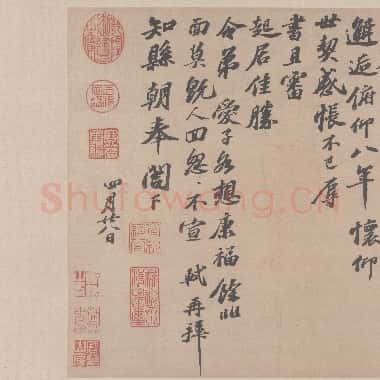 邂逅俯仰八年 懷仰
世契感悵不已辱
書且審
起居佳勝
令弟愛子各想康福餘非
面莫既人回怱怱不宣 軾再拜
知縣朝奉閣下
四月廿八日
Shufawang.cn